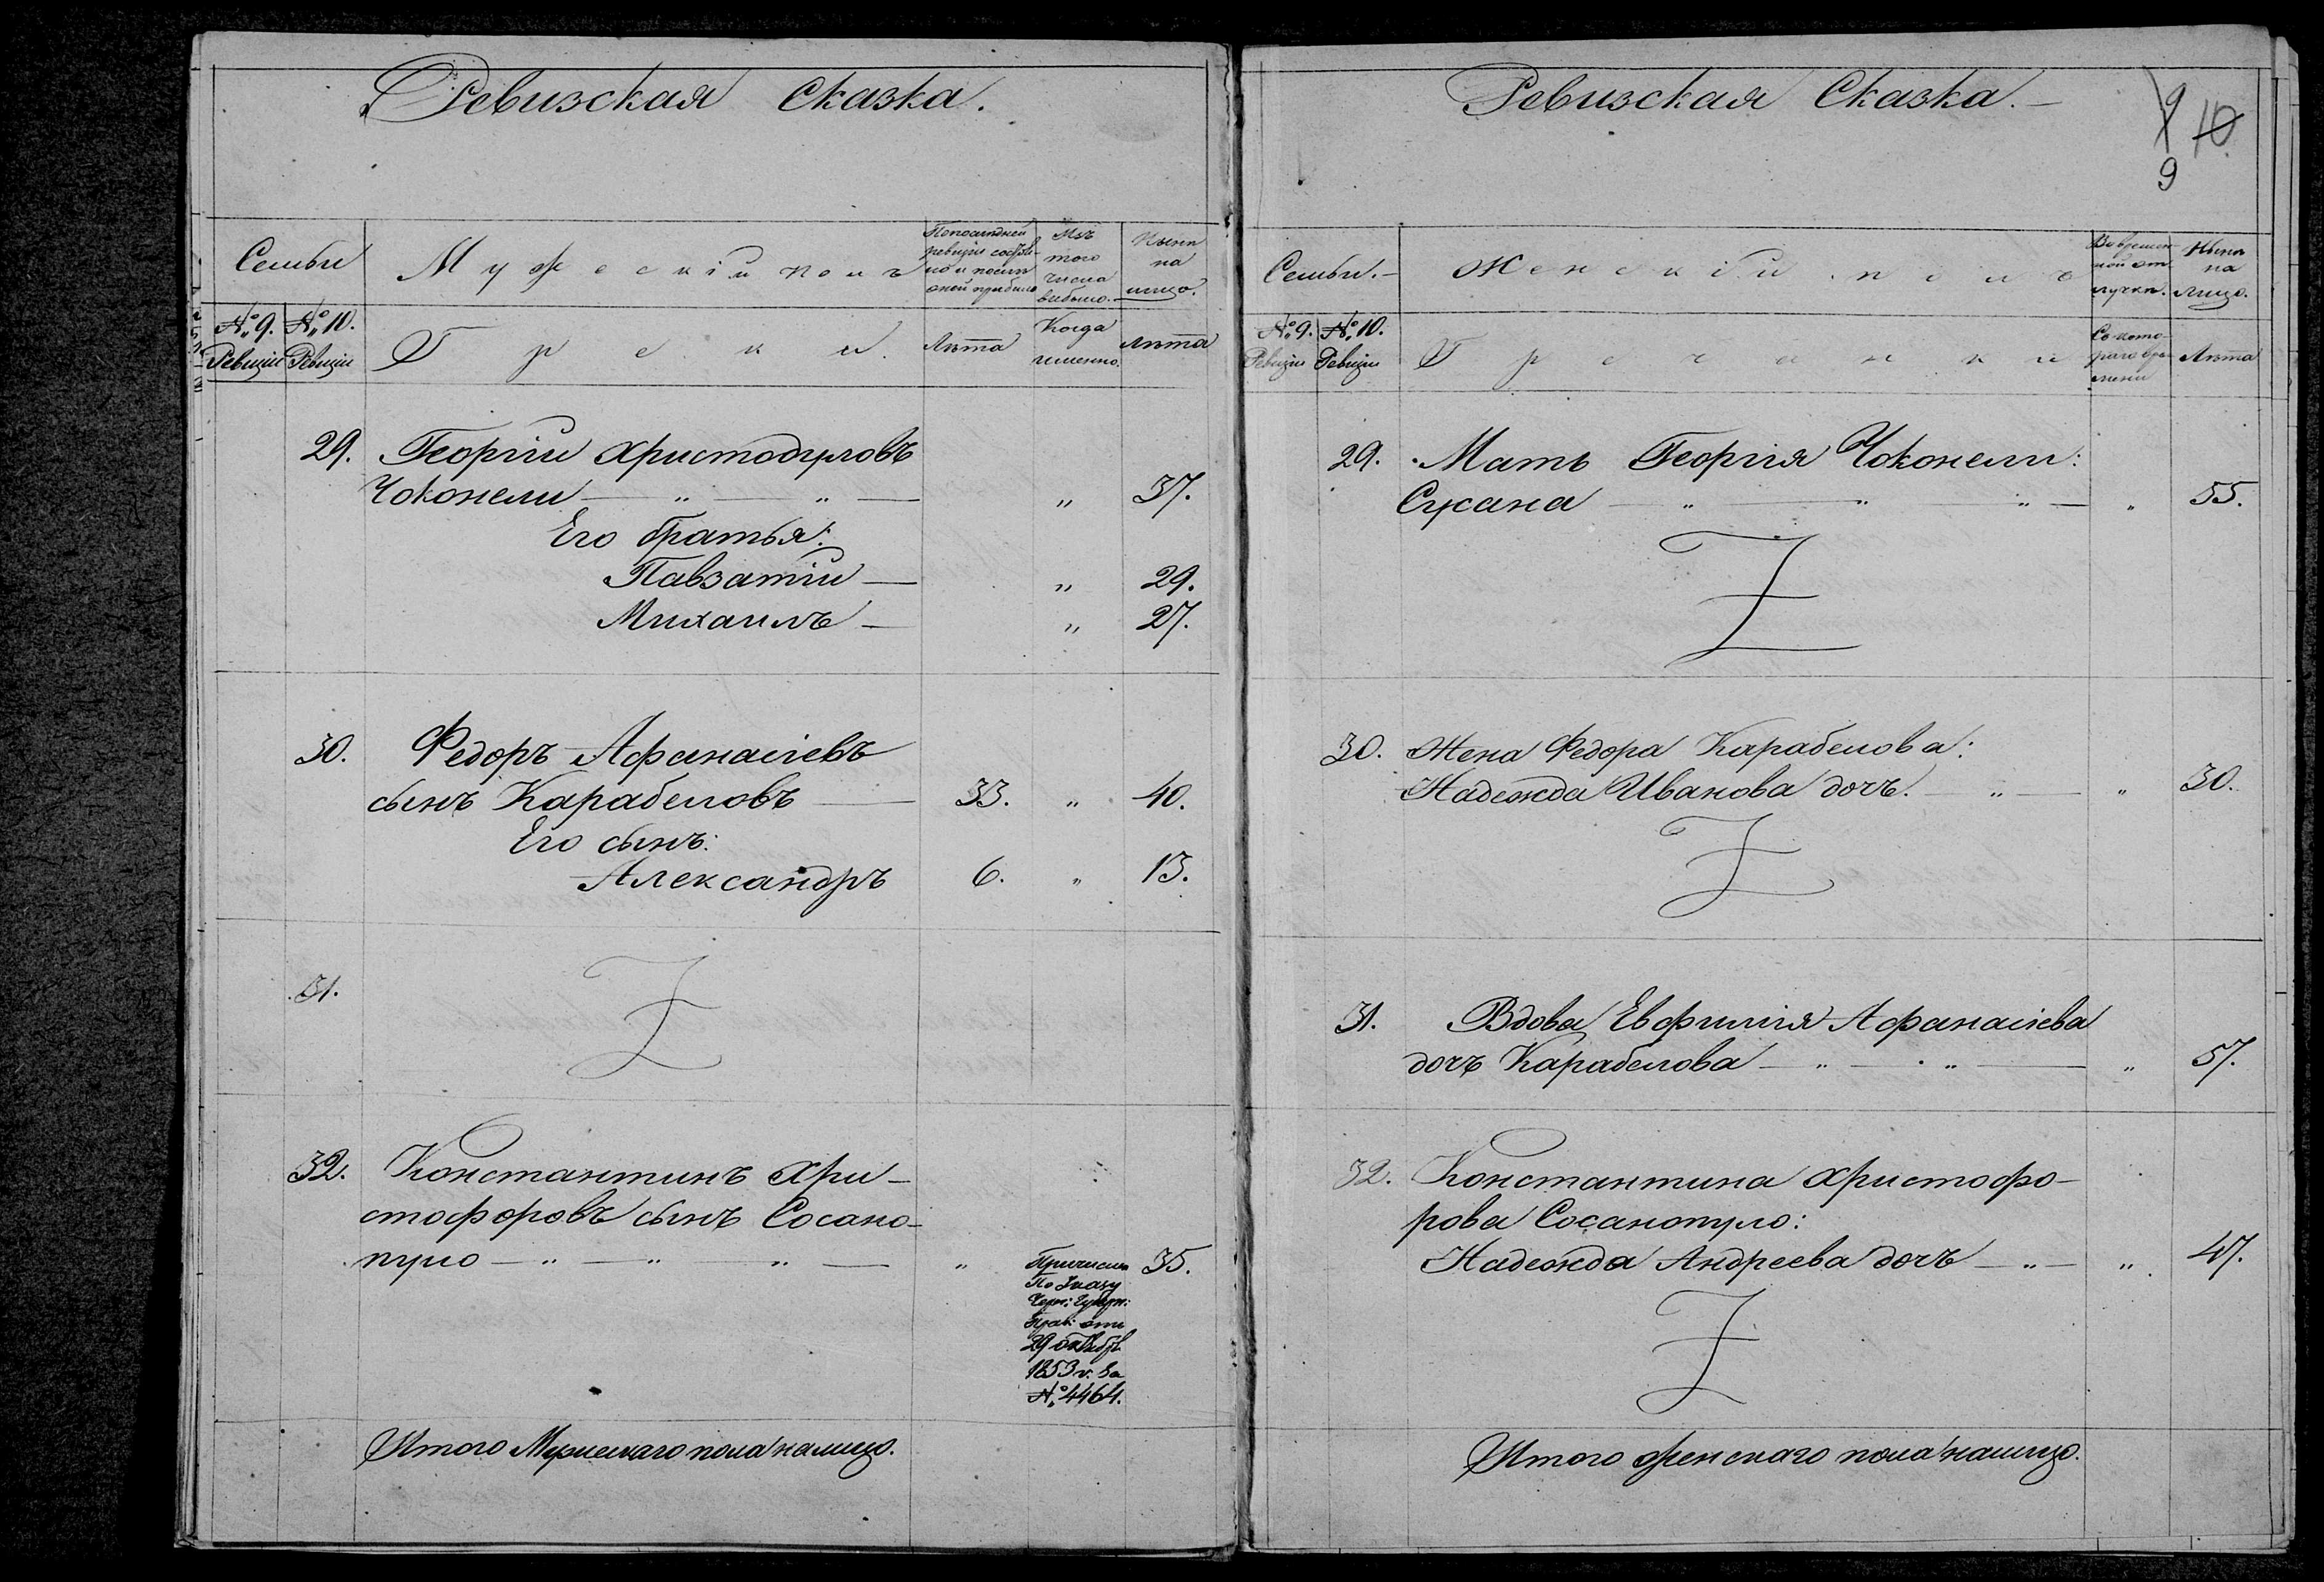 Ревизская Сказка.
Семьи
Мужескій полъ
По последней
ревизіи состоя-
ло и после
оной прибыло
Изъ
того
числа
выбыло.
Ныне
на
лицо.
№ 9.
Ревизіи
№ 10.
Ревизіи
Греки.
Лета
Когда
именно.
Лета
29. Георгій Христодуловъ
Чоконели — " — " — " 37.
Его братья:
Павзатій — " 29.
Михаилъ — " 27.
30. Федоръ Афанасіевъ
сынъ Карабеловъ — 33. " 40.
Его сынъ:
Александръ 6. " 13.
31.
32. Константинъ Хри-
стофоровъ сынъ Сосано-
пуло — " — " — " — " 35.
Причислен
По Указу
Черн: Губерн:
Прав: отъ
29 октября
1853 г. за
№ 4464.
Итого Мужескаго пола налицо.
Ревизская Сказка. —
9 10
9
Семьи. —
Женскій полъ
Во времен-
ной от-
лучке.
Ныне
на
лицо.
№ 9.
Ревизіи
№ 10.
Ревизіи
Гречанки
Съ кото-
раго вре-
мени
Лета
29. Мать Георгія Чоконели:
Сусана — " — " — " — " 55.
30. Жена Федора Карабелова:
Надежда Иванова дочь. — " — " 30.
31. Вдова Евфимія Афанасіева
дочь Карабелова — " — " — " 57.
32. Константина Христофо-
рова Сосанопуло:
Надежда Андреева дочь — " — " 47.
Итого женскаго пола налицо.